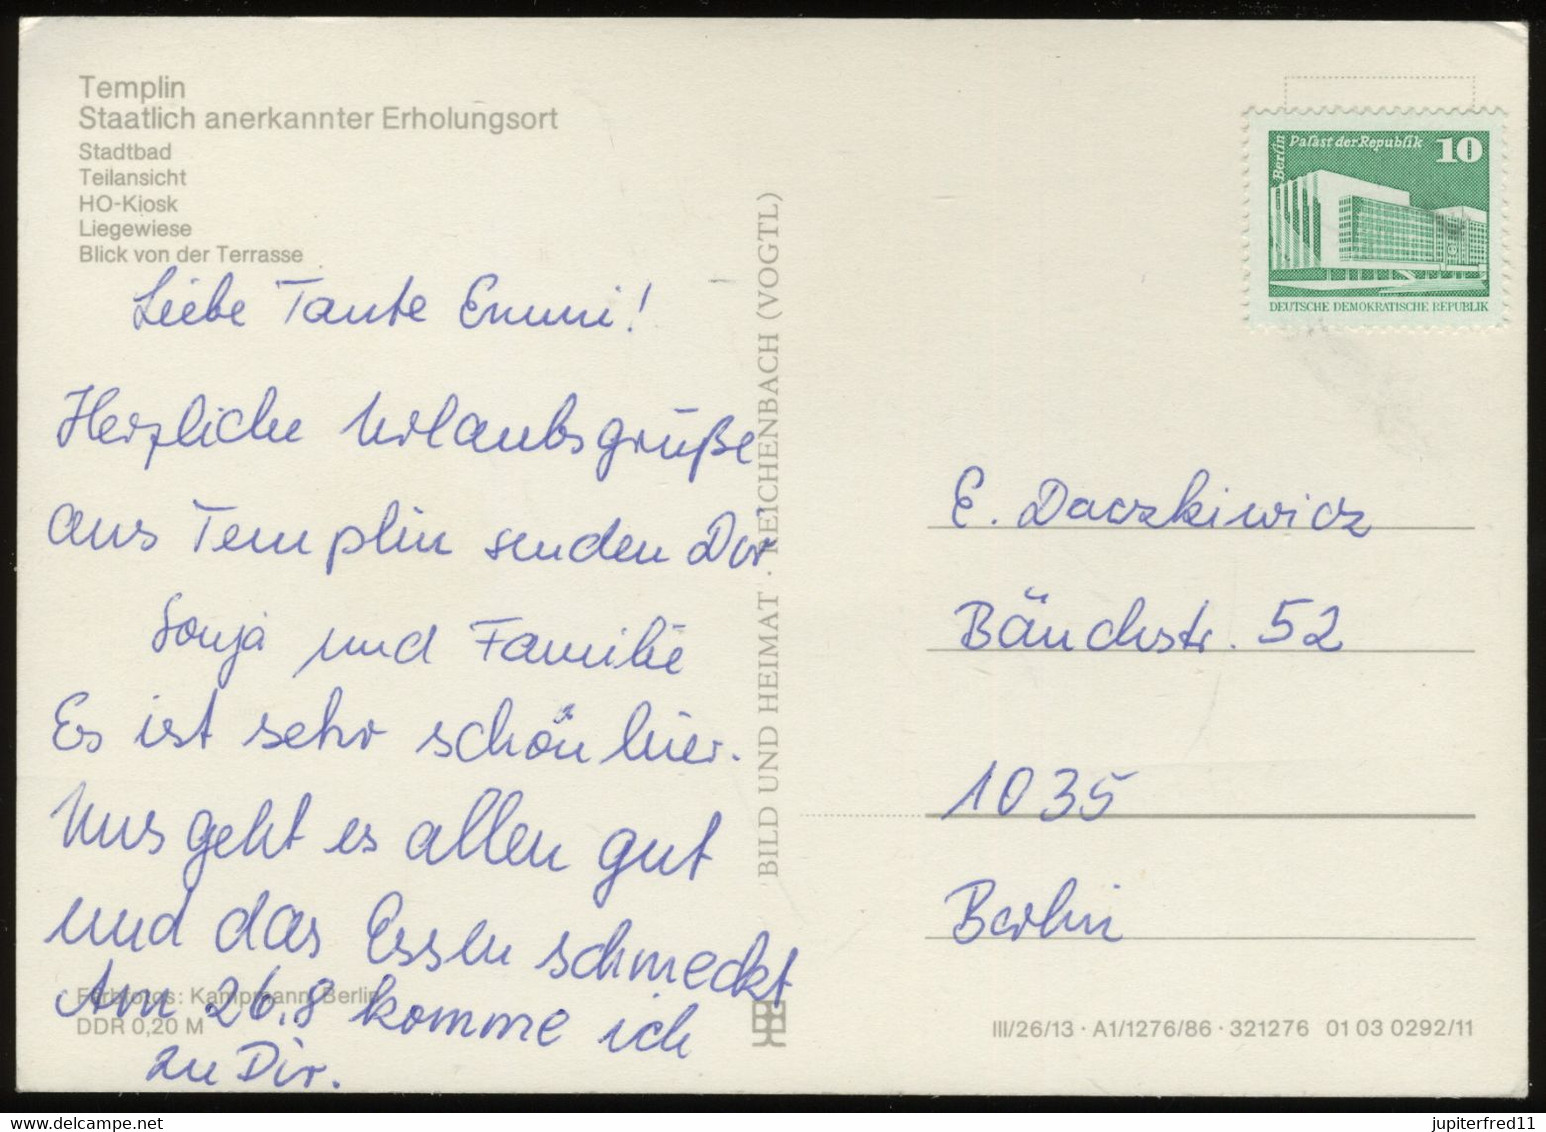 Templin
Staatlich anerkannter Erholungsort
Stadtbad
Teilansicht
HO-Kiosk
Liegewiese
Blick von der Terrasse
Liebe Tante Emmi!
Herzliche Urlaubsgrüße
aus Templin senden Dir
Sonja und Familie
Es ist sehr schön hier.
Uns geht es allen gut
und das Essen schmeckt
Am 26.8 komme ich
zu Dir.
Farbfotos: Kampmann, Berlin
DDR 0,20 M
BILD UND HEIMAT · REICHENBACH (VOGTL)
Berlin
Palast der Republik
10
DEUTSCHE DEMOKRATISCHE REPUBLIK
E. Daczkiwicz
Bänchstr. 52
1035
Berlin
III/26/13 · A1/1276/86 · 321276 01 03 0292/11
delcampe.net
jupiterfred11